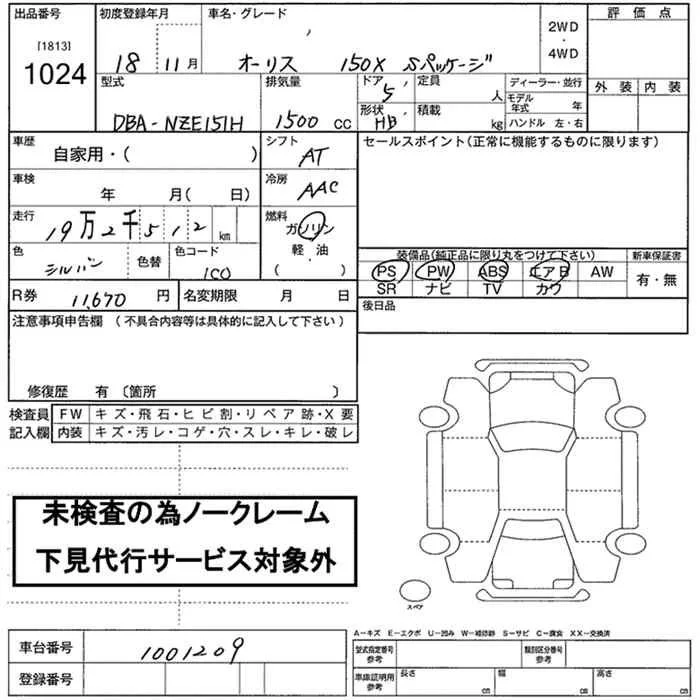 出品番号 初度登録年月 車名・グレード 2WD・4WD 評価点
[1813]
1024 18 11月 オーリス 150X Sパッケージ
外装 内装
型式 排気量 ドア 5 定員 人 ディーラー・並行
DBA-NZE151H 1500 CC 形状 HB 積載 kg モデル年式 年
ハンドル 左・右
車歴 シフト セールスポイント(正常に機能するものに限ります)
自家用・( ) AT
車検 冷房
年 月( 日) AAC
走行 燃料
19万2千512 km ガソリン
軽・油
・
( )
色 色替 色コード 装備品(純正品に限り丸をつけて下さい) 新車保証書
シルバー 1C0 PS PW ABS エアB AW 有・無
SR ナビ TV カワ
R券 11,670 円 名変期限 月 日 後日品
注意事項申告欄 (不具合内容等は具体的に記入して下さい)
修復歴 有 〔箇所 〕
検査員 FW キズ・飛石・ヒビ割・リペア跡・X要
記入欄 内装 キズ・汚レ・コゲ・穴・スレ・キレ・破レ
未検査の為ノークレーム
下見代行サービス対象外
スペア
A-キズ E-エクボ U-凹み W-補修跡 S-サビ C-腐食 XX-交換済
車台番号 1001209 型式指定番号 参考 類別区分番号 参考
登録番号 車庫証明用 参考 長さ cm 幅 cm 高さ cm